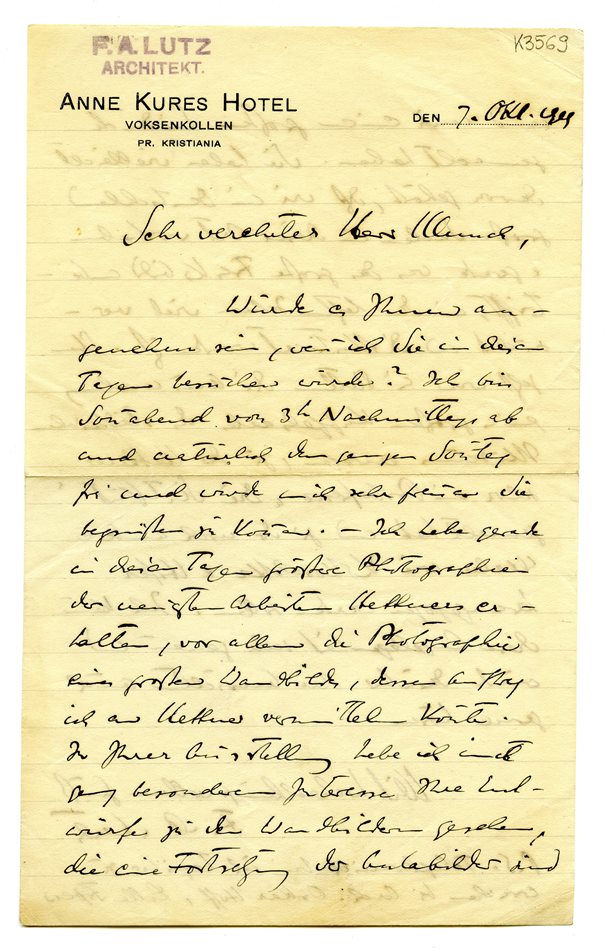 K3569
F. A. LUTZ
ARCHITEKT.
ANNE KURES HOTEL
VOKSENKOLLEN
PR. KRISTIANIA
DEN 7. Okt.
Sehr verehrter Herr Munch,
Würde es Ihnen an-
genehm sein, wenn ich Sie in diesen
Tagen besuchen würde? Ich bin
Sonnabend von 3h Nachmittags ab
und natürlich den ganzen Sonntag
frei und würde mich sehr freuen Sie
begrüßen zu können. – Ich habe gerade
in diesen Tagen größere Photographien
der neuesten Arbeiten Hettners er-
halten, vor allem die Photographie
eines großen Wandbildes, dessen Auftrag
ich an Hettner vermitteln konnte.
In Ihrer Ausstellung habe ich mit
ganz besonderem Interesse Ihre Ent-
würfe zu den Wandbildern gesehen,
die eine Fortsetzung der Aulabilder sind